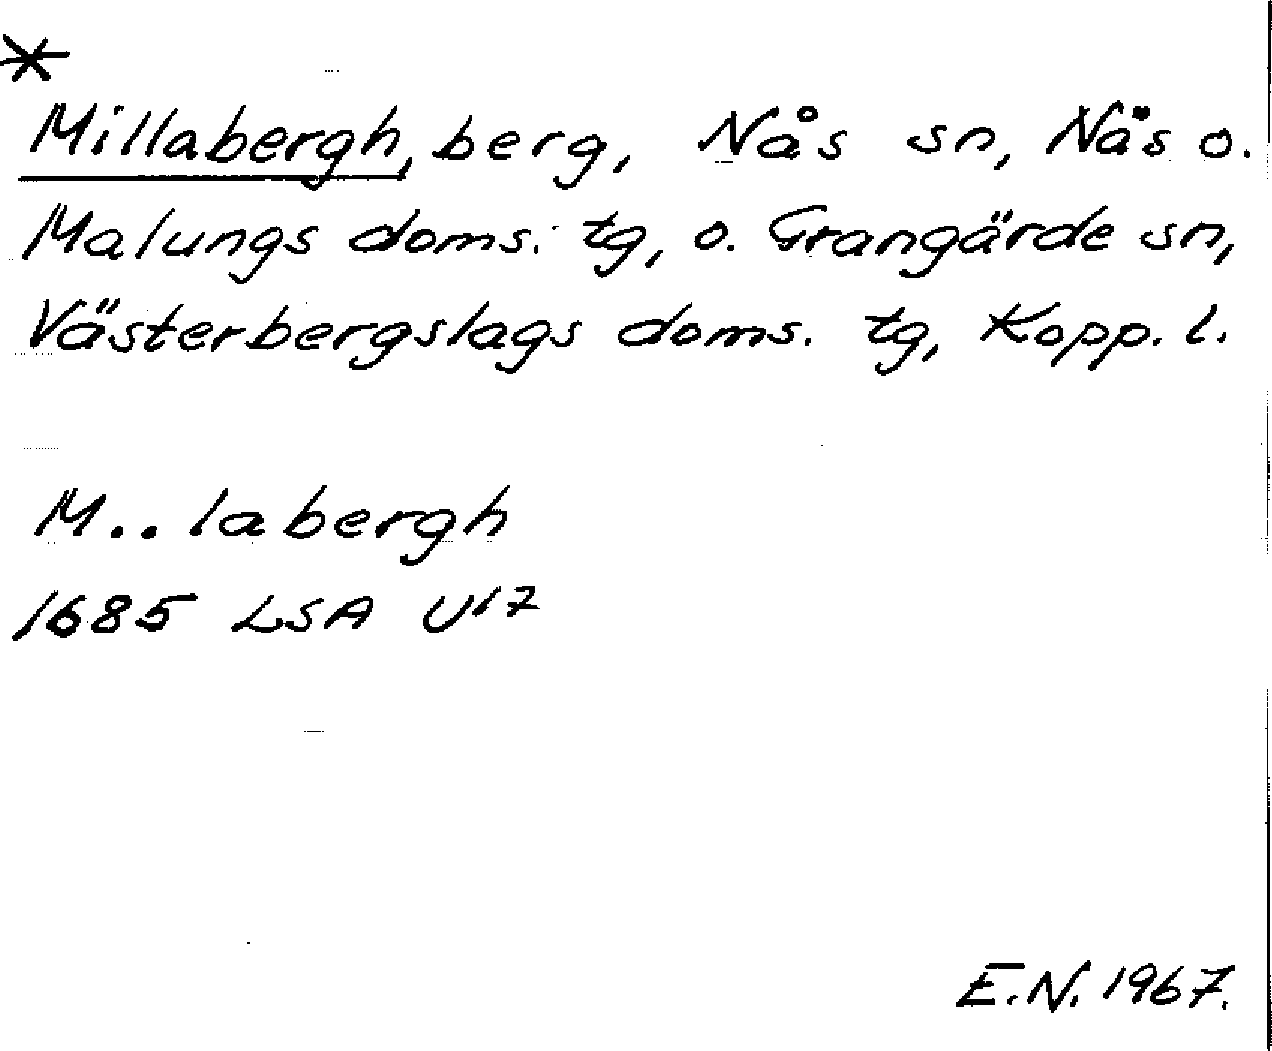 *
Millabergh, berg, Nås sn, Näs o.
Malungs doms. tg, o. Grangärde sn,
Västerbergslags doms. tg, Kopp. l.
M..labergh
1685 LSA U17
E.N. 1967.